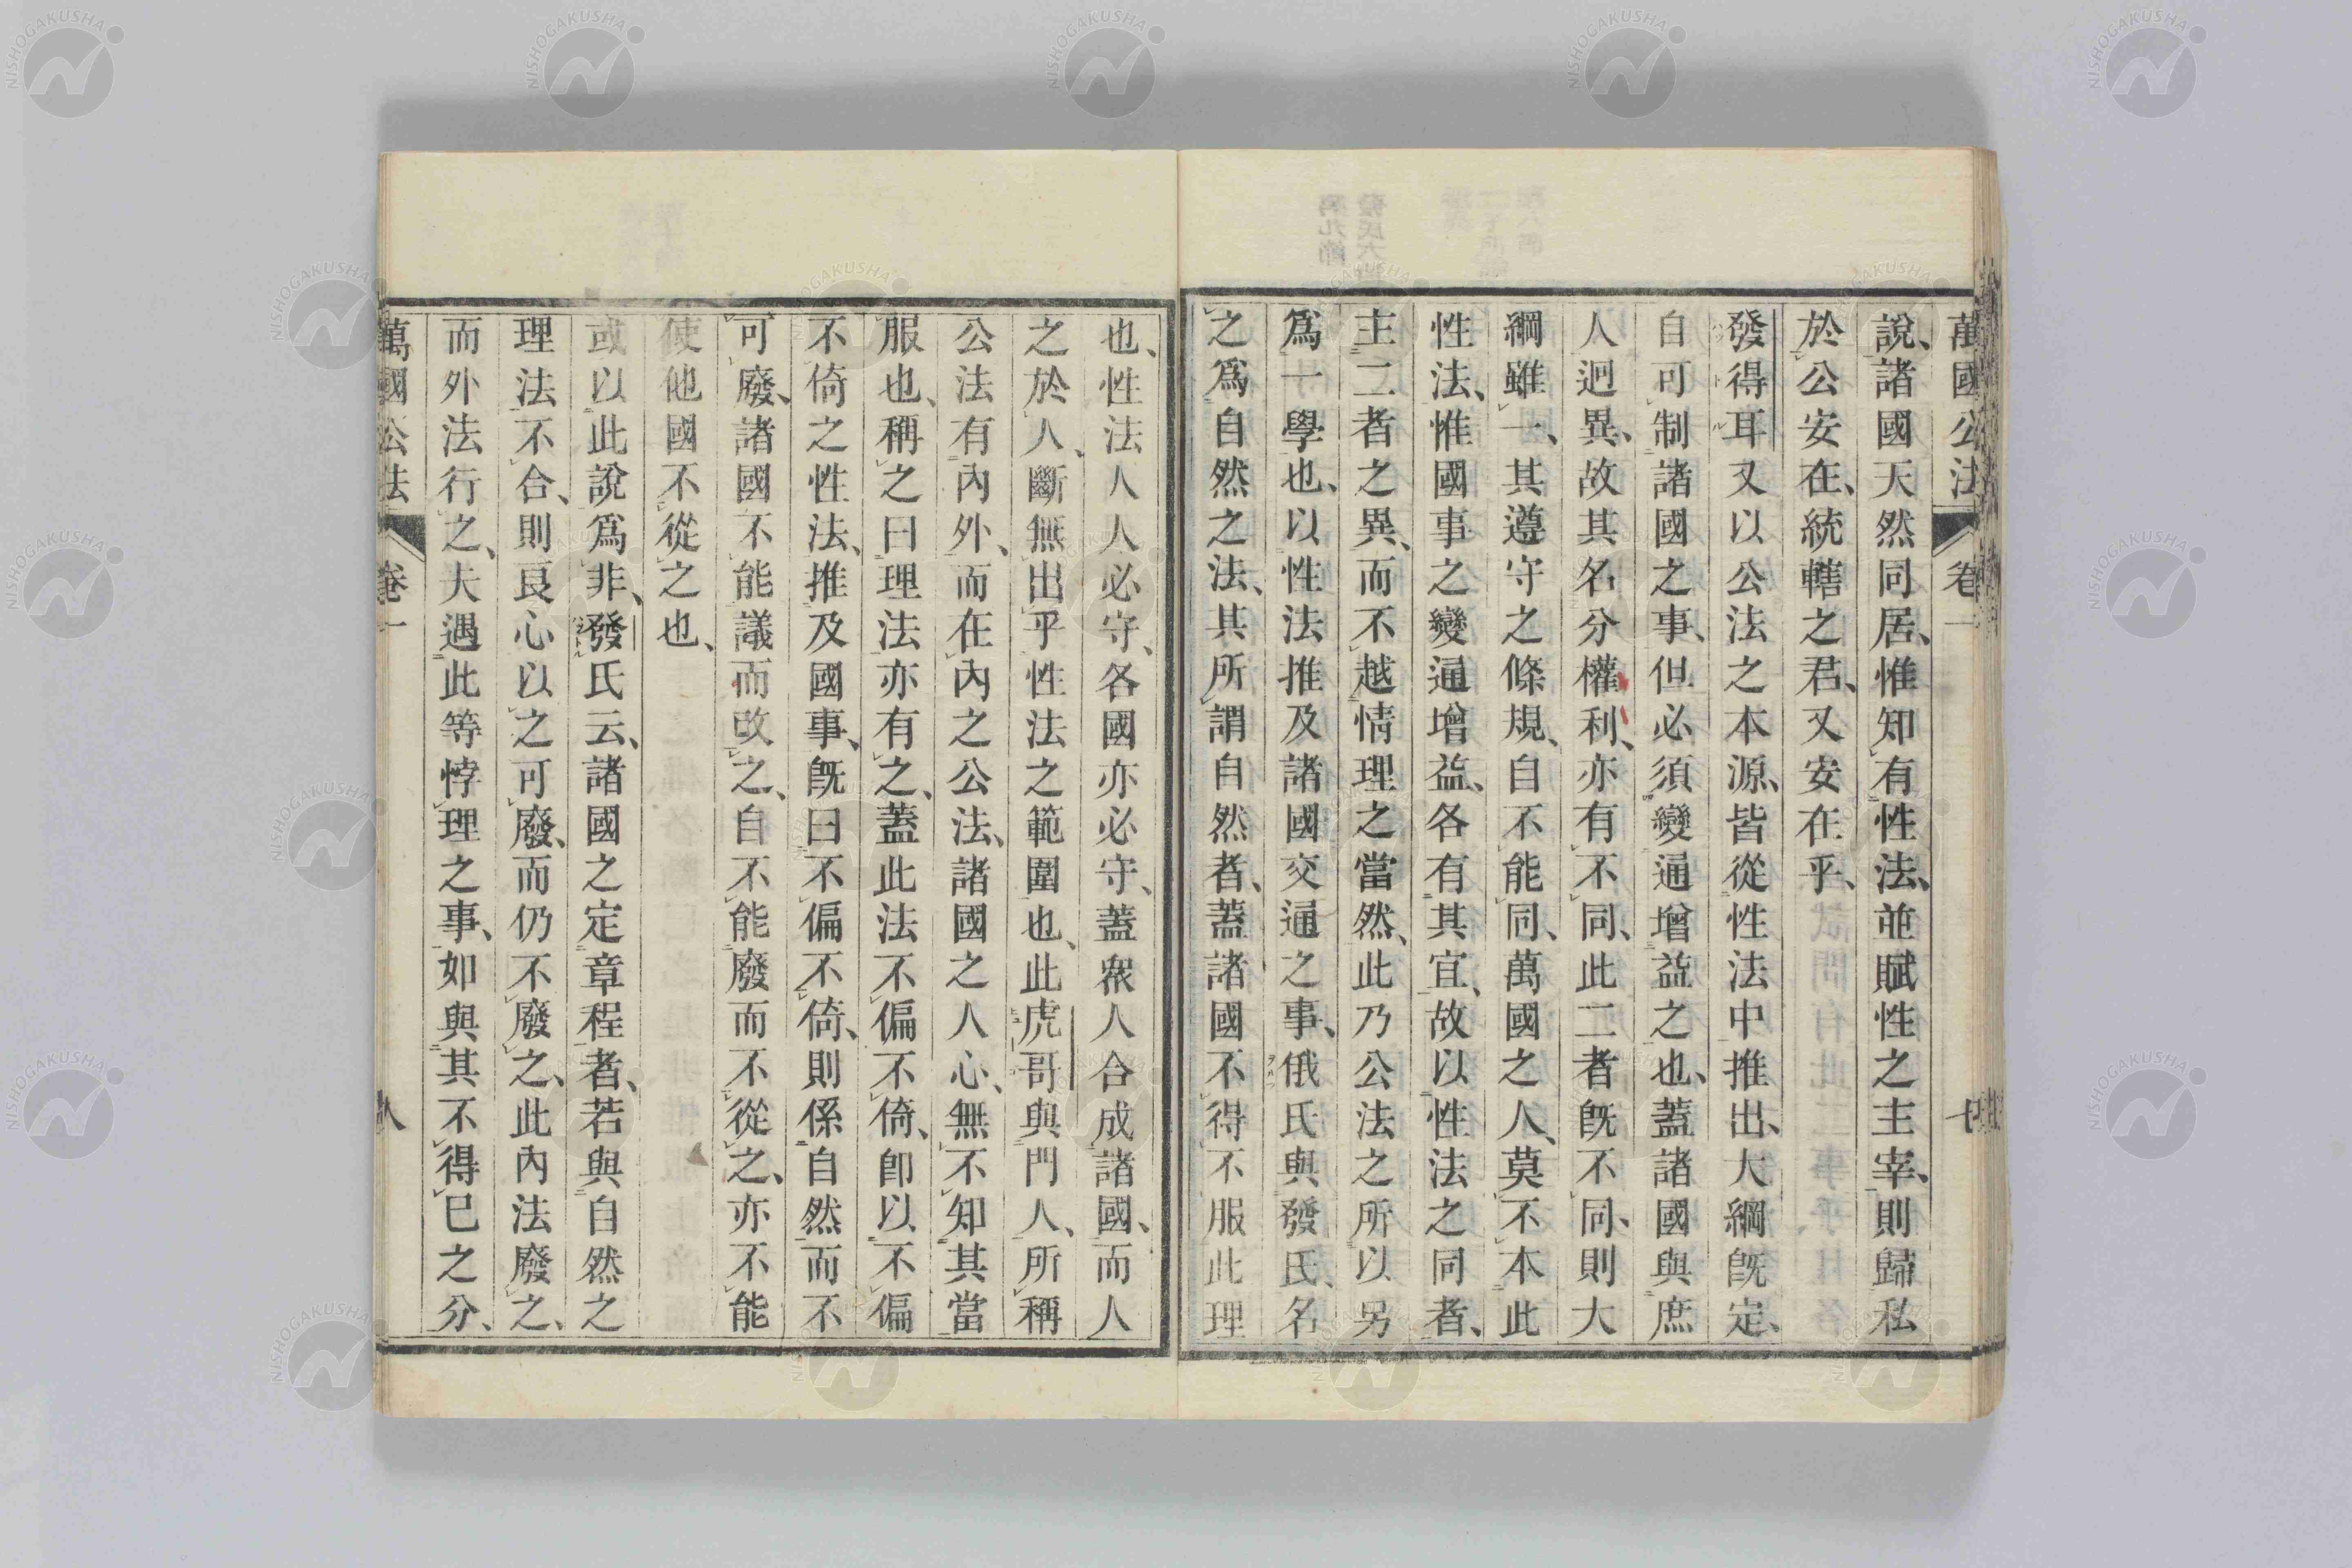 萬國公法 卷一 七
說、諸國天然同居、惟知有性法、並賦性之主宰、則歸私
於公安在、統轄之君、又安在乎、
發得耳又以公法之本源、皆從性法中推出、大綱旣定、
自可制諸國之事、但必須變通增益之也、蓋諸國與庶
人迥異、故其名分權利、亦有不同、此二者旣不同、則大
綱雖一、其遵守之條規、自不能同、萬國之人、莫不本此
性法、惟國事之變通增益、各有其宜、故以性法之同者、
主二者之異、而不越情理之當然、此乃公法之所以另
爲一學也、以性法推及諸國交通之事、俄氏與發氏、名
之爲自然之法、其所謂自然者、蓋諸國不得不服此理
也、性法人人必守、各國亦必守、蓋衆人合成諸國、而人
之於人、斷無出乎性法之範圍也、此虎哥與門人、所稱
公法有內外、而在內之公法、諸國之人心、無不知其當
服也、稱之曰理法亦有之、蓋此法不偏不倚、卽以不偏
不倚之性法、推及國事、旣曰不偏不倚、則係自然而不
可廢、諸國不能議而改之、自不能廢而不從之、亦不能
使他國不從之也、
或以此說爲非、發氏云、諸國之定章程者、若與自然之
理法不合、則良心以之可廢、而仍不廢之、此內法廢之、
而外法行之、夫遇此等悖理之事、如與其不得已之分、
萬國公法 卷一 八
NISHOGAKUSHA